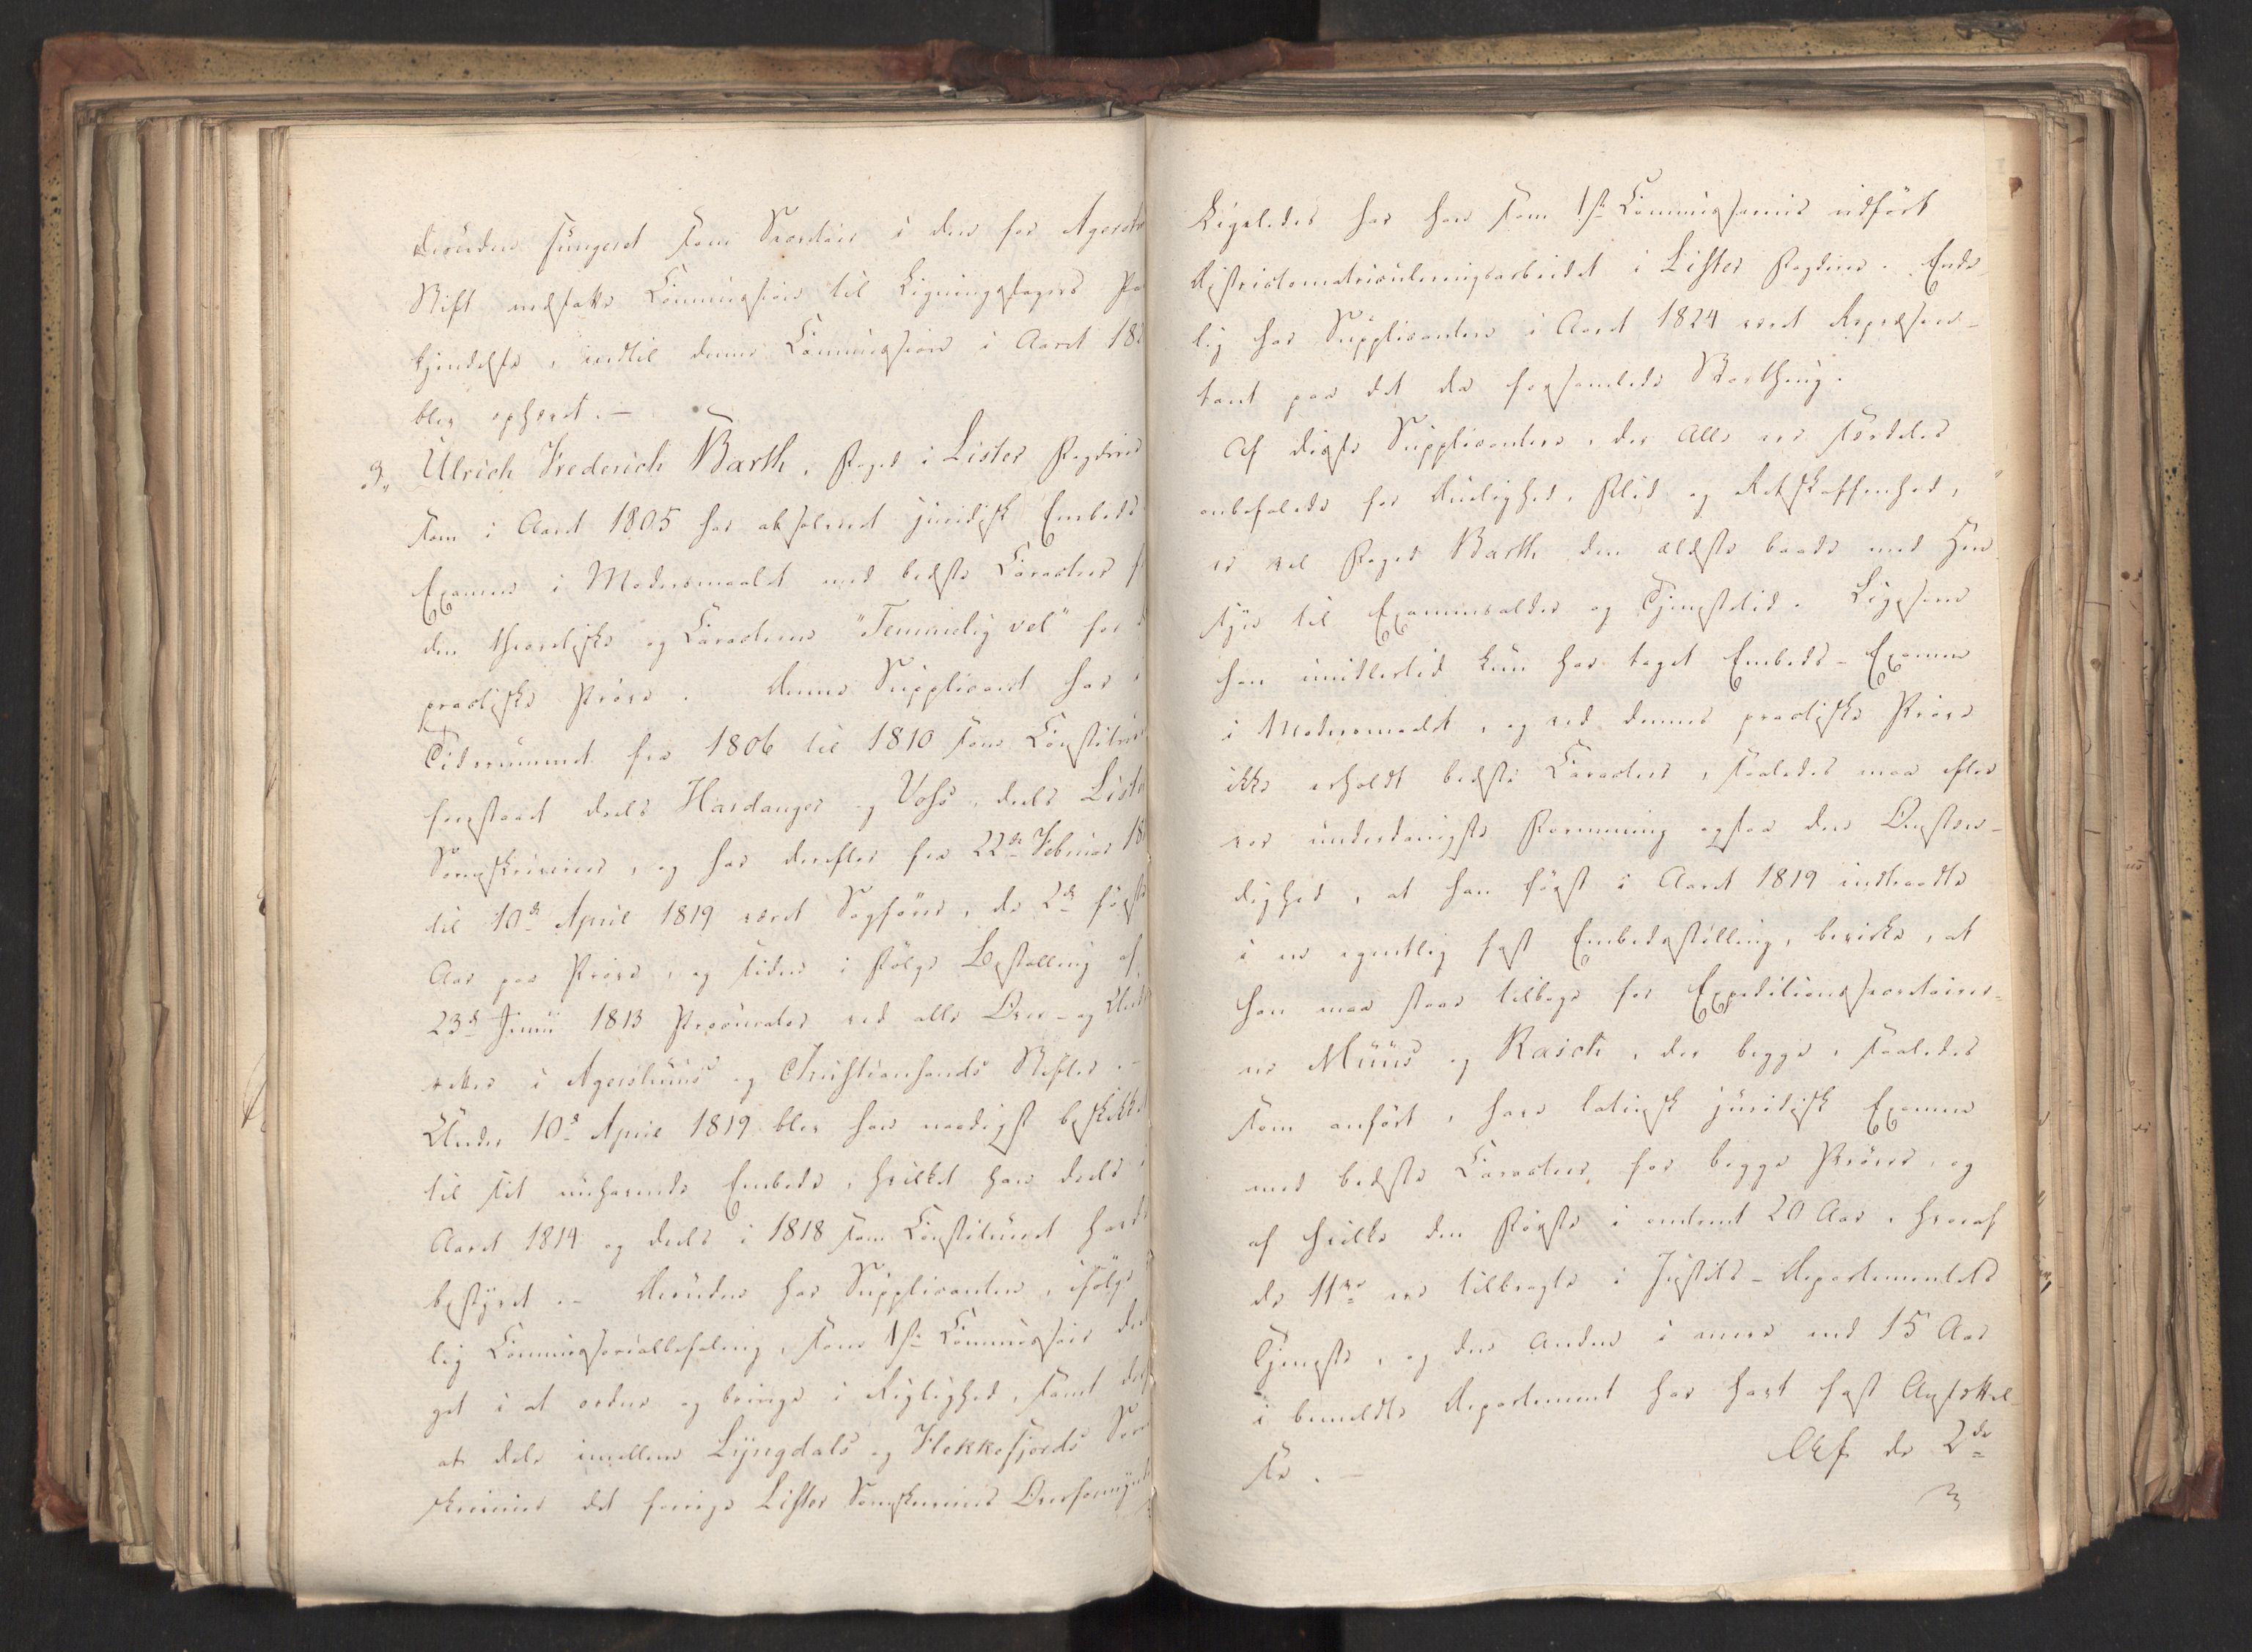 desuden fungeret som Secretair i den for Agershu
Stift nedsatte Commission til Ligningsfagers Paa
kjendelse, indtil denne Commission i Aaret 182
blev ophævet. —
3, Ulrich Frederich Barth, Foged i Lister Fogderie
som i Aaret 1805 har absolveret juridisk Embeds
Examen i Modersmaalet med bedste Caracteer f
den theoretiske og Caracteren "Temmelig vel" for d
practiske Prøve. Denne Supplicant har i
Tidsrummet fra 1806 til 1810 som Constitue
forestaaet deels Hardanger og Voss, deels Liste
Sorenskriverier, og har derefter fra 22de Februar 18
til 10de April 1819 været Sagfører, de 2de første
Aar paa Prøve, og siden i Følge Bestalling af
23de Junii 1813 Procurator ved alle Over- og Unde
retter i Agershuus og Christiansands Stifter. —
Under 10de April 1819 blev han naadigst beskikket
til sit nuhavende Embede, hvilket han deels i
Aaret 1814 og deels i 1818 som Constitueret havde
bestyret. — Desuden har Supplicanten, ifølge
lig Commissorialbefaling, som 1ste Commissair del
get i at ordne og bringe i Rigtighed, samt der
at dele imellem Lyngdals og Flekkefjords Sore
skriverier det forrige Lister Sorenskriveries Overformynde
Ligeledes har han som 1ste Commissarius udført
Districtsmatriculeringsarbeidet i Lister Fogderie. Ende-
lig har Supplicanten i Aaret 1824 været Repræsen-
tant paa det da forsamlede Storthing.
Af disse Supplicantere, der Alle ere særdeles
anbefalede for Duelighed, Flid og Retskaffenhed,
er vel Foged Barth den ældste baade med Hen-
syn til Examensalder og Tjenestetid. Ligesom
han imidlertid kun har taget Embeds-Examen
i Modersmaalet, og ved dennes practiske Prøve
ikke erholdt bedste Caracteer, saaledes maa efter
vor underdanigste Formening ogsaa den Omstæn-
dighed, at han først i Aaret 1819 indtraadte
i en egentlig fast Embedsstilling, bevirke, at
han maa staae tilbage for Expeditionssecretairer-
ne Müus og Rasch, der begge, saaledes
som anført, have latinsk juridisk Examen
med bedste Caracteer for begge Prøver, og
af hvilke den Første i omtrent 20 Aar, hvoraf
de 11ve ere tilbragte i Justits-Departementets
Tjeneste, og den Anden i mere end 15 Aar
i bemeldte Departement har havt fast Ansættel-
se. —
Af de 2de